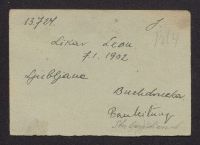 13.704.
Likar Leon
7.1.1902
Ljubljana
Buchdrucker
Bauleitung